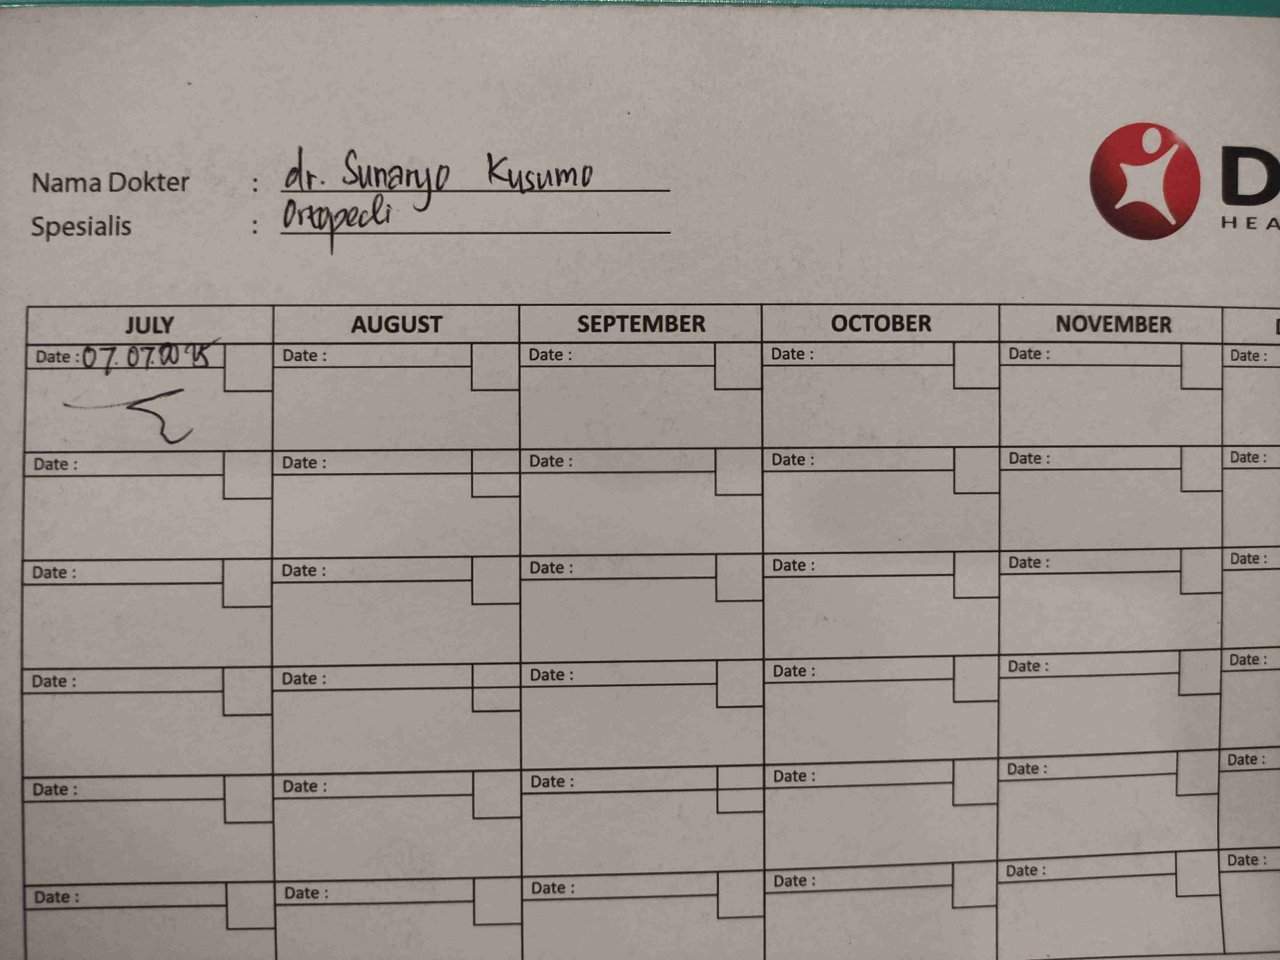 Nama Dokter : dr. Sunaryo Kusumo
Spesialis : Ortopedi
D
HEA
JULY AUGUST SEPTEMBER OCTOBER NOVEMBER
Date : 07.07. Date : Date : Date : Date : Date :
Date : Date : Date : Date : Date : Date :
Date : Date : Date : Date : Date : Date :
Date : Date : Date : Date : Date : Date :
Date : Date : Date : Date : Date : Date :
Date : Date : Date : Date : Date : Date :